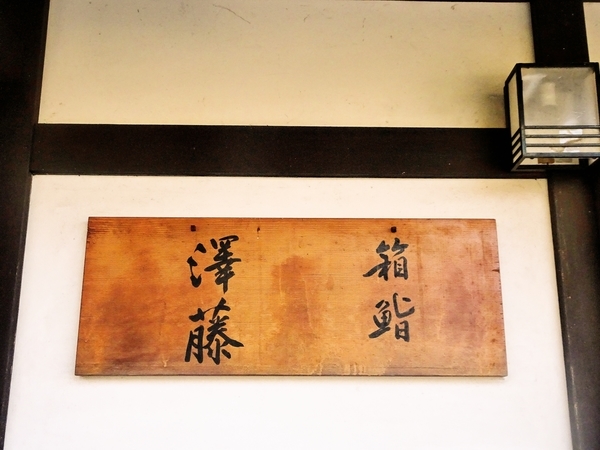 箱鮨
澤藤